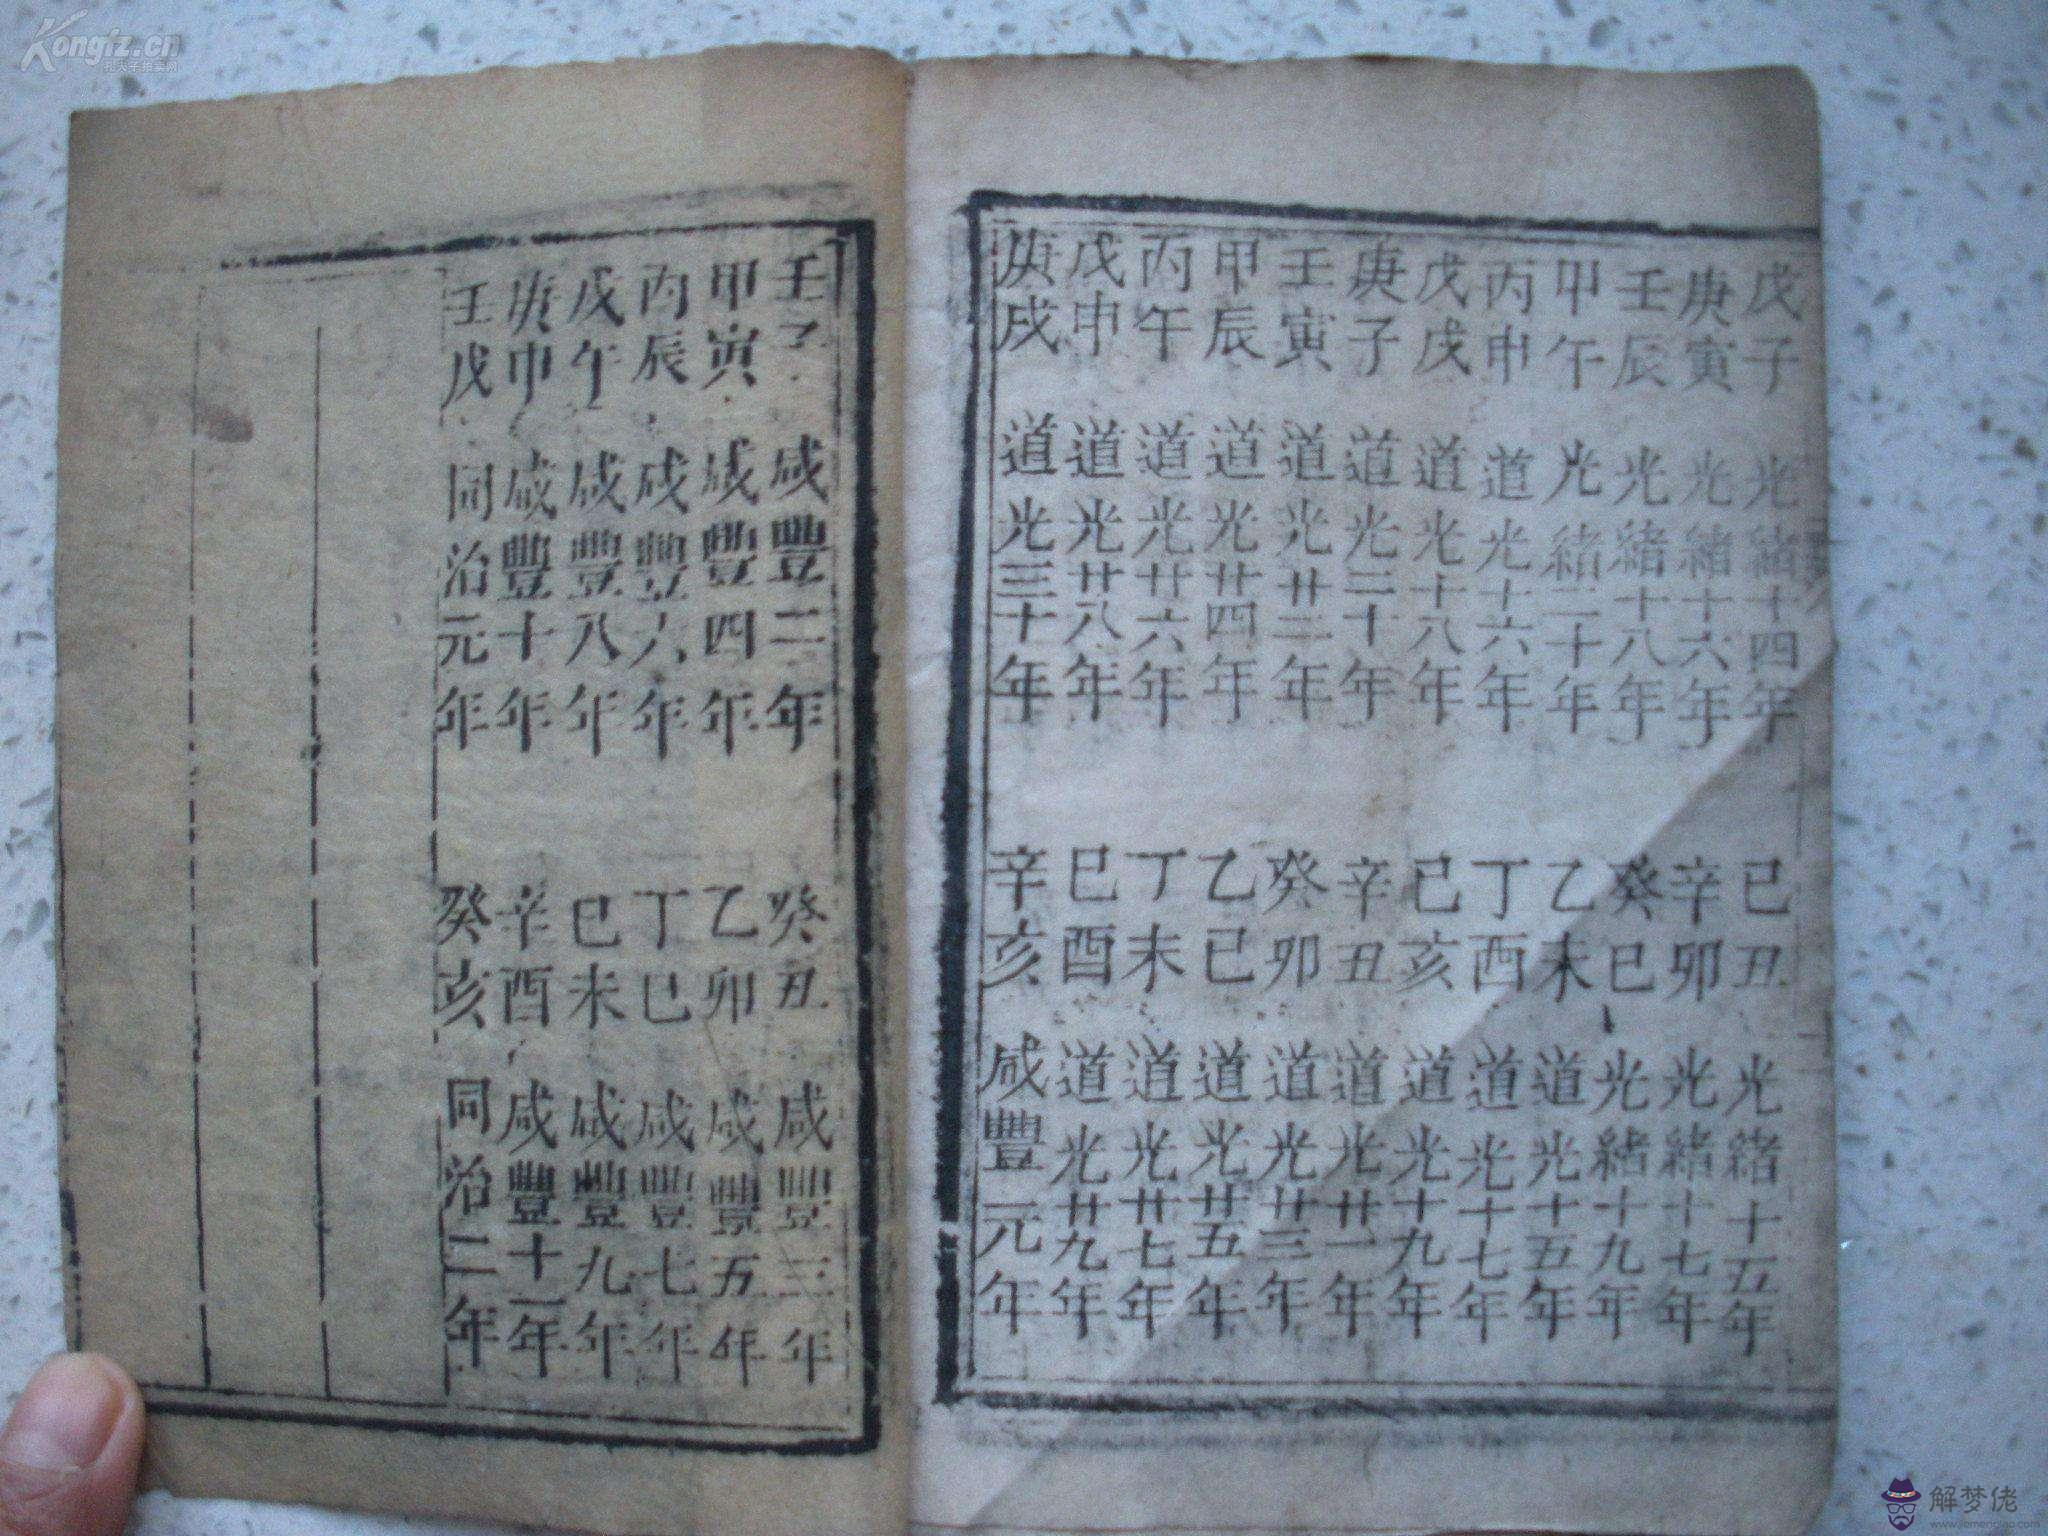 戊子 光緒十四年 己丑 光緒十五年
庚寅 光緒十六年 辛卯 光緒十七年
壬辰 光緒十八年 癸巳 光緒十九年
甲午 光緒二十年 乙未 道光十五年
丙申 道光十六年 丁酉 道光十七年
戊戌 道光十八年 己亥 道光十九年
庚子 道光二十年 辛丑 道光廿一年
壬寅 道光廿二年 癸卯 道光廿三年
甲辰 道光廿四年 乙巳 道光廿五年
丙午 道光廿六年 丁未 道光廿七年
戊申 道光廿八年 己酉 道光廿九年
庚戌 道光三十年 辛亥 咸豐元年
壬子 咸豐二年 癸丑 咸豐三年
甲寅 咸豐四年 乙卯 咸豐五年
丙辰 咸豐六年 丁巳 咸豐七年
戊午 咸豐八年 己未 咸豐九年
庚申 咸豐十年 辛酉 咸豐十一年
壬戌 同治元年 癸亥 同治二年
Kongfz.cn
孔夫子拍卖网
解梦佬